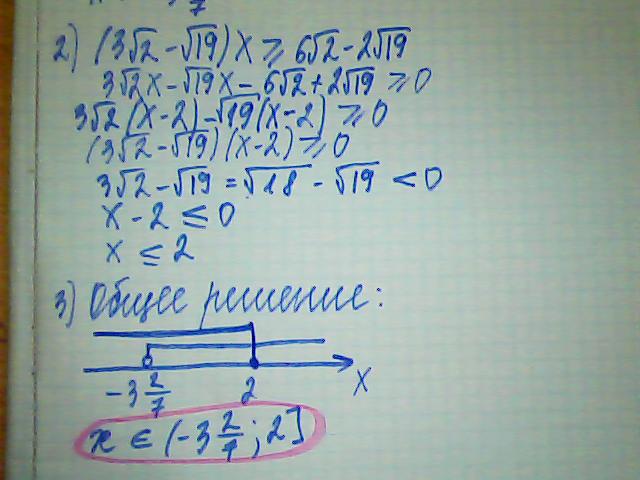 2) (3√2 - √19) x ≥ 6√2 - 2√19
3√2x - √19x - 6√2 + 2√19 ≥ 0
3√2(x-2) - √19(x-2) ≥ 0
(3√2 - √19)(x-2) ≥ 0
3√2 - √19 = √18 - √19 < 0
x - 2 ≤ 0
x ≤ 2
3) Общее решение:
-3 2/7 2 x
x ∈ (-3 2/7; 2]